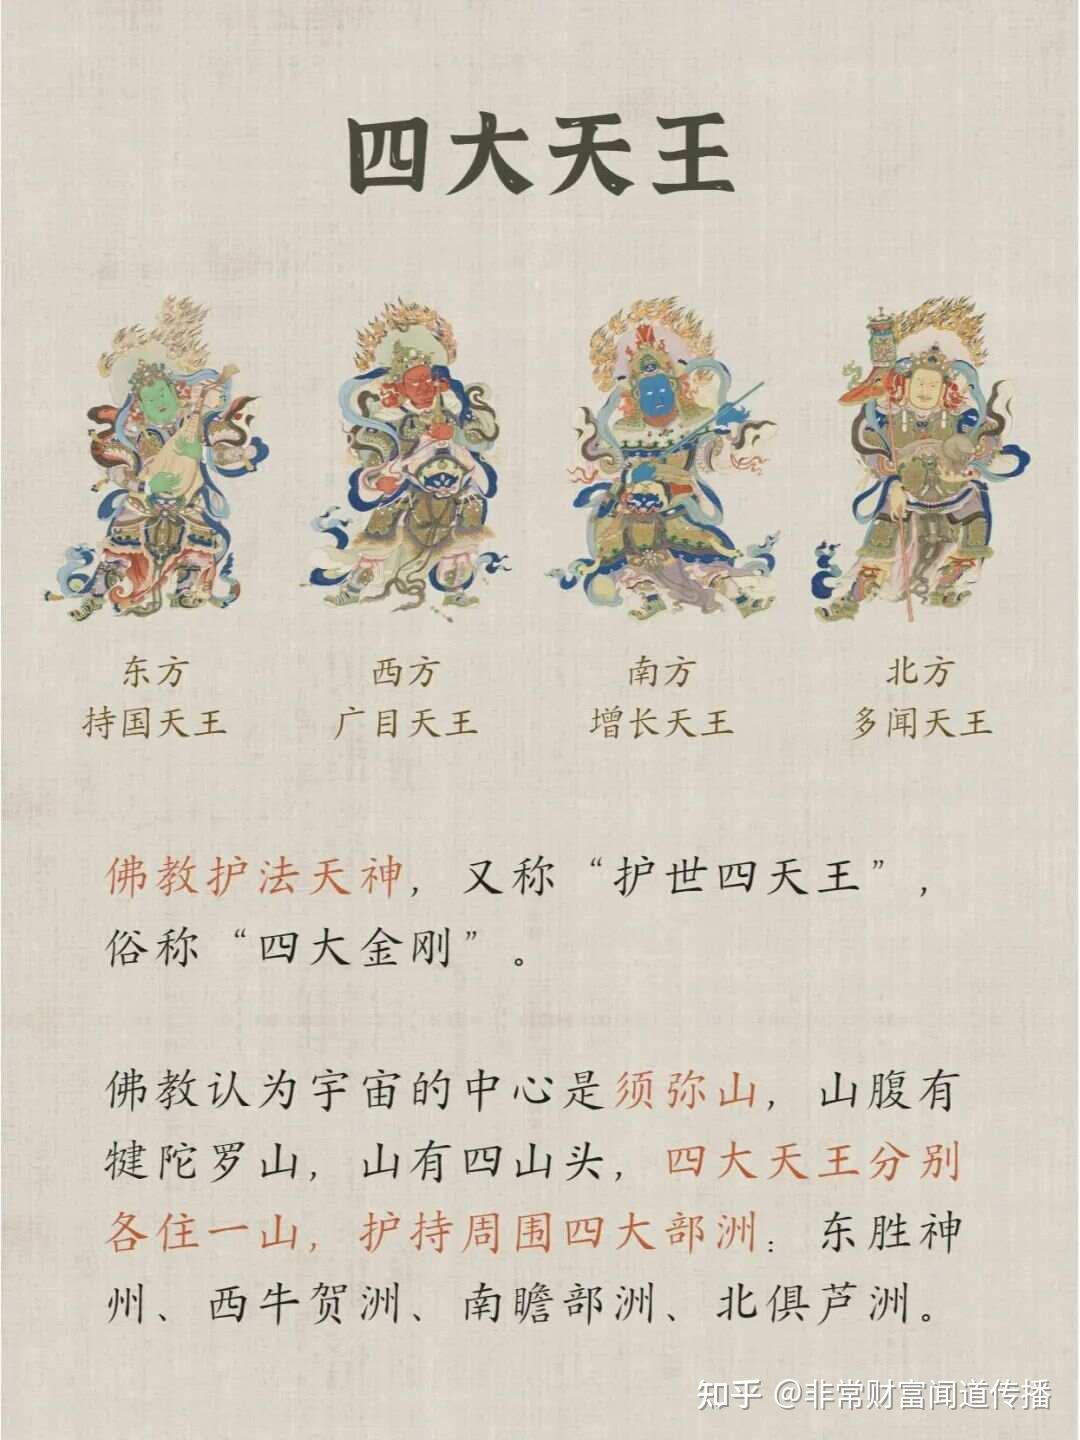 四大天王
东方
持国天王
西方
广目天王
南方
增长天王
北方
多闻天王
佛教护法天神，又称“护世四天王”，
俗称“四大金刚”。
佛教认为宇宙的中心是须弥山，山腹有
犍陀罗山，山有四山头，四大天王分别
各住一山，护持周围四大部洲：东胜神
州、西牛贺洲、南瞻部洲、北俱芦洲。
知乎 @非常财富闻道传播